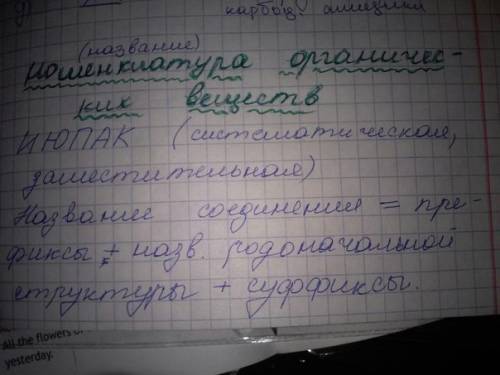 карбоц. аминами
(название)
Номенклатура органичес-
ких веществ
ИЮПАК (систематическая,
заместительная)
Название соединения = пре-
фиксы + назв. родоначальной
структуры + суффиксы.
All the flowers of
yesterday.